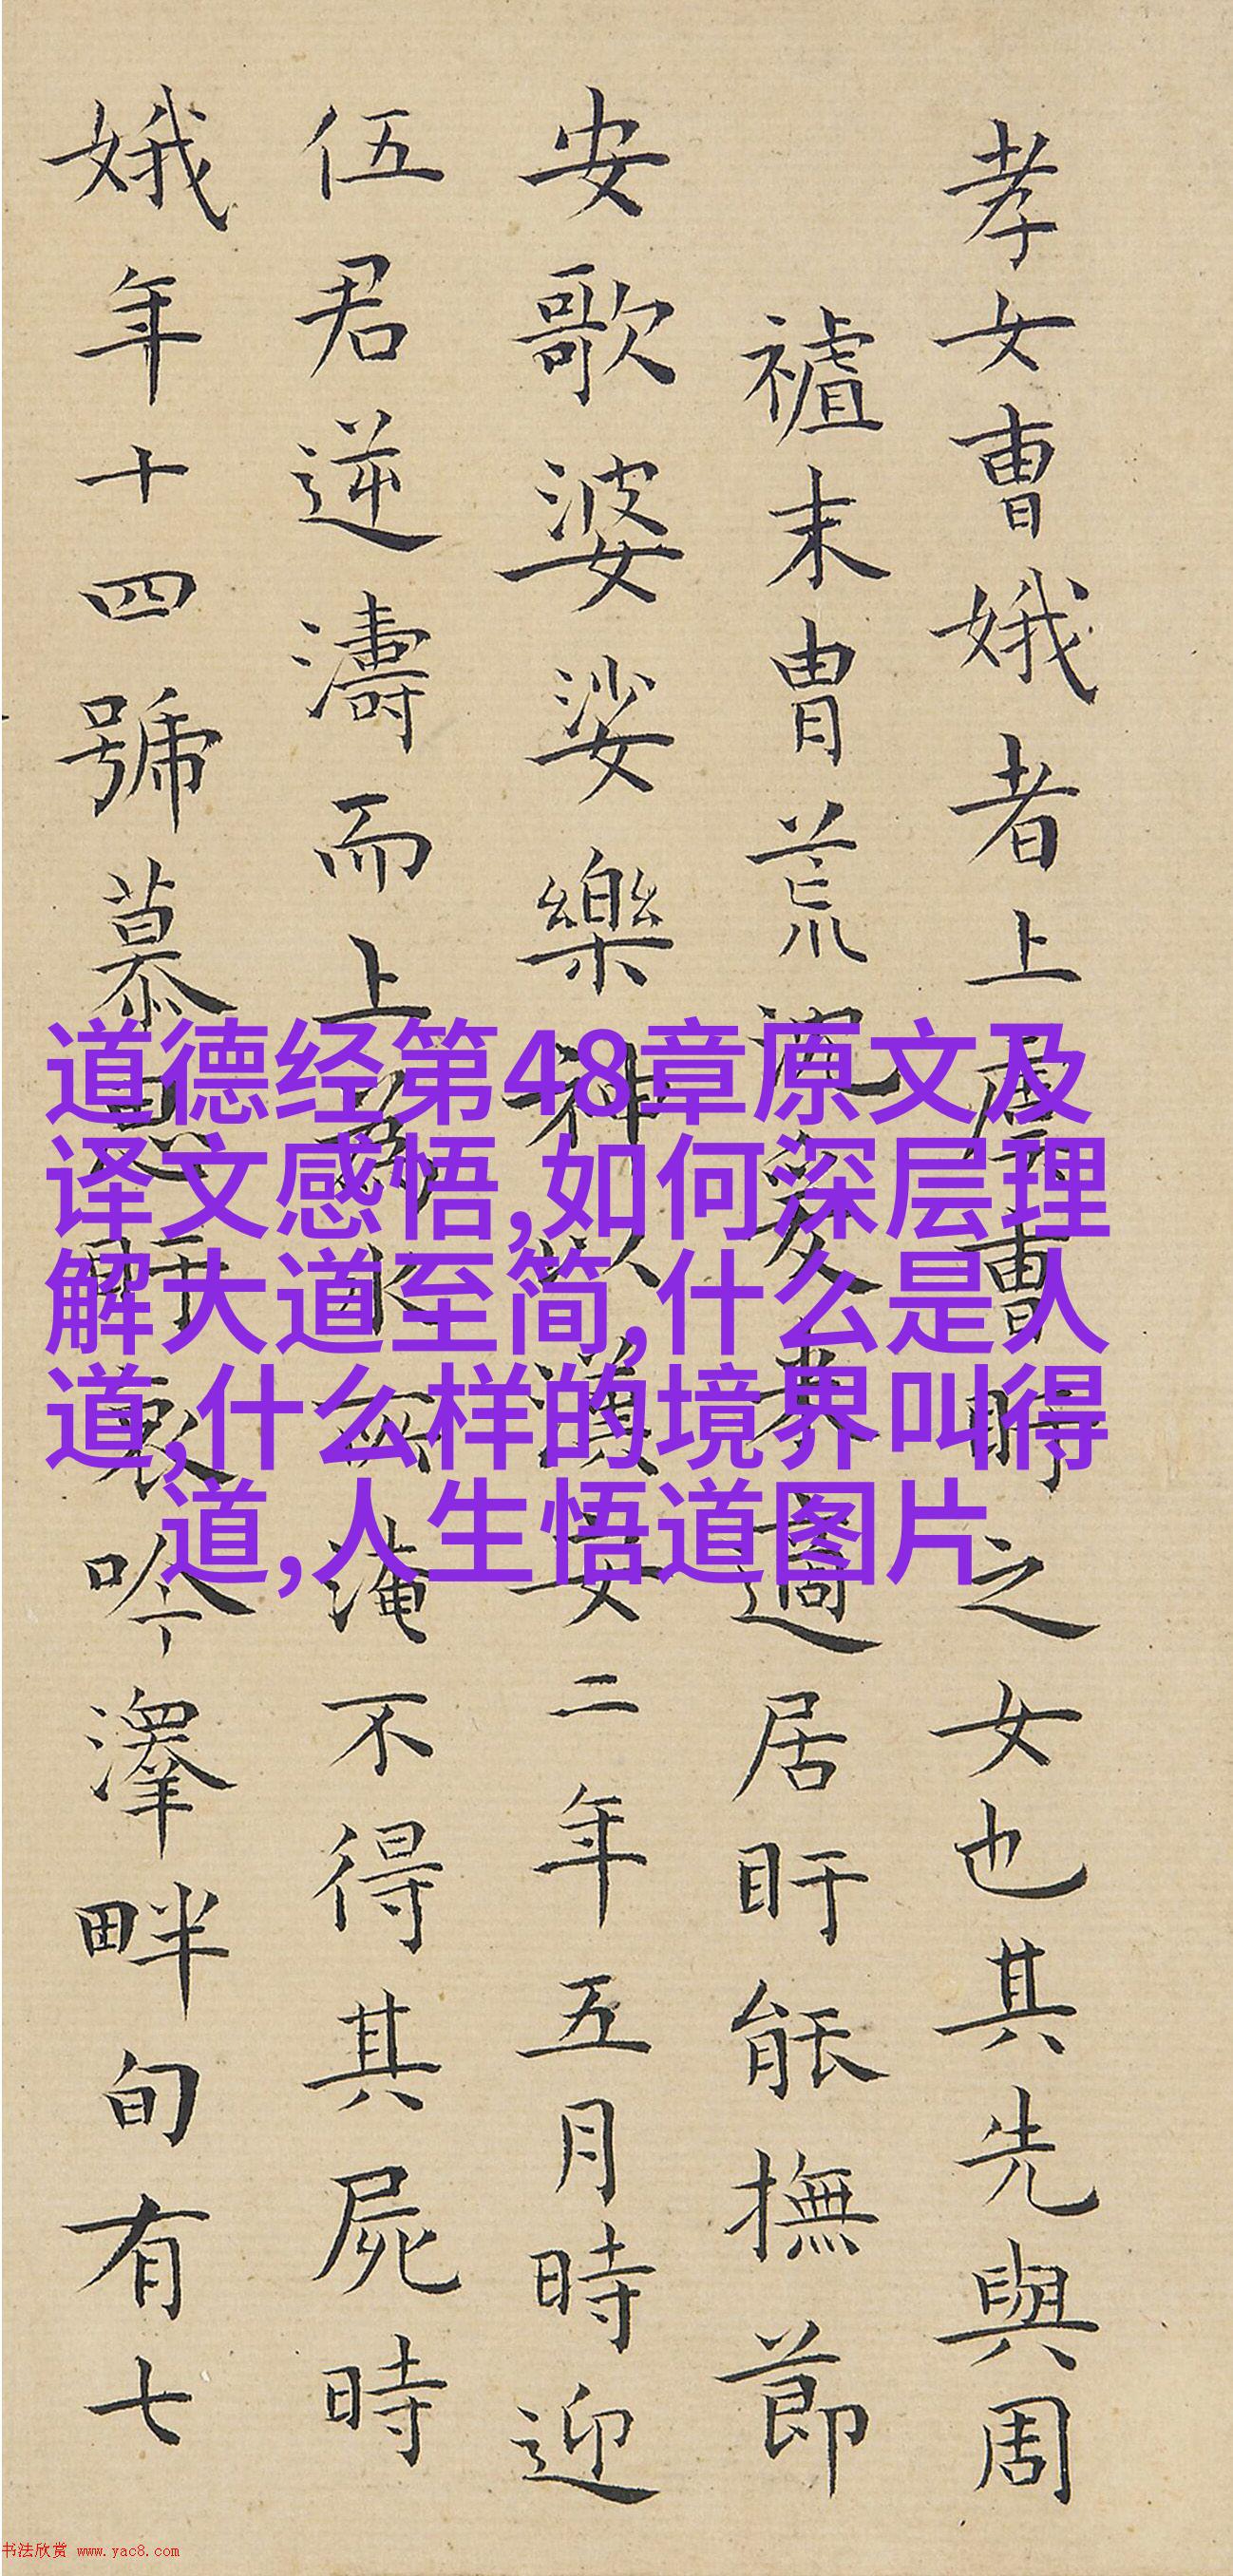 孝女曹娥者上虞曹盱之女也其先與周
禠末胄荒沈爰來適居盱能撫節
安歌婆娑樂神以漢安二年五月時迎
伍君逆濤而上為水所淹不得其屍時
娥年十四號慕思盱哀吟澤畔旬有七
道德经第48章原文及
译文感悟,如何深层理
解大道至简,什么是人
道,什么样的境界叫得
道,人生悟道图片
书法欣赏 www.yac8.com